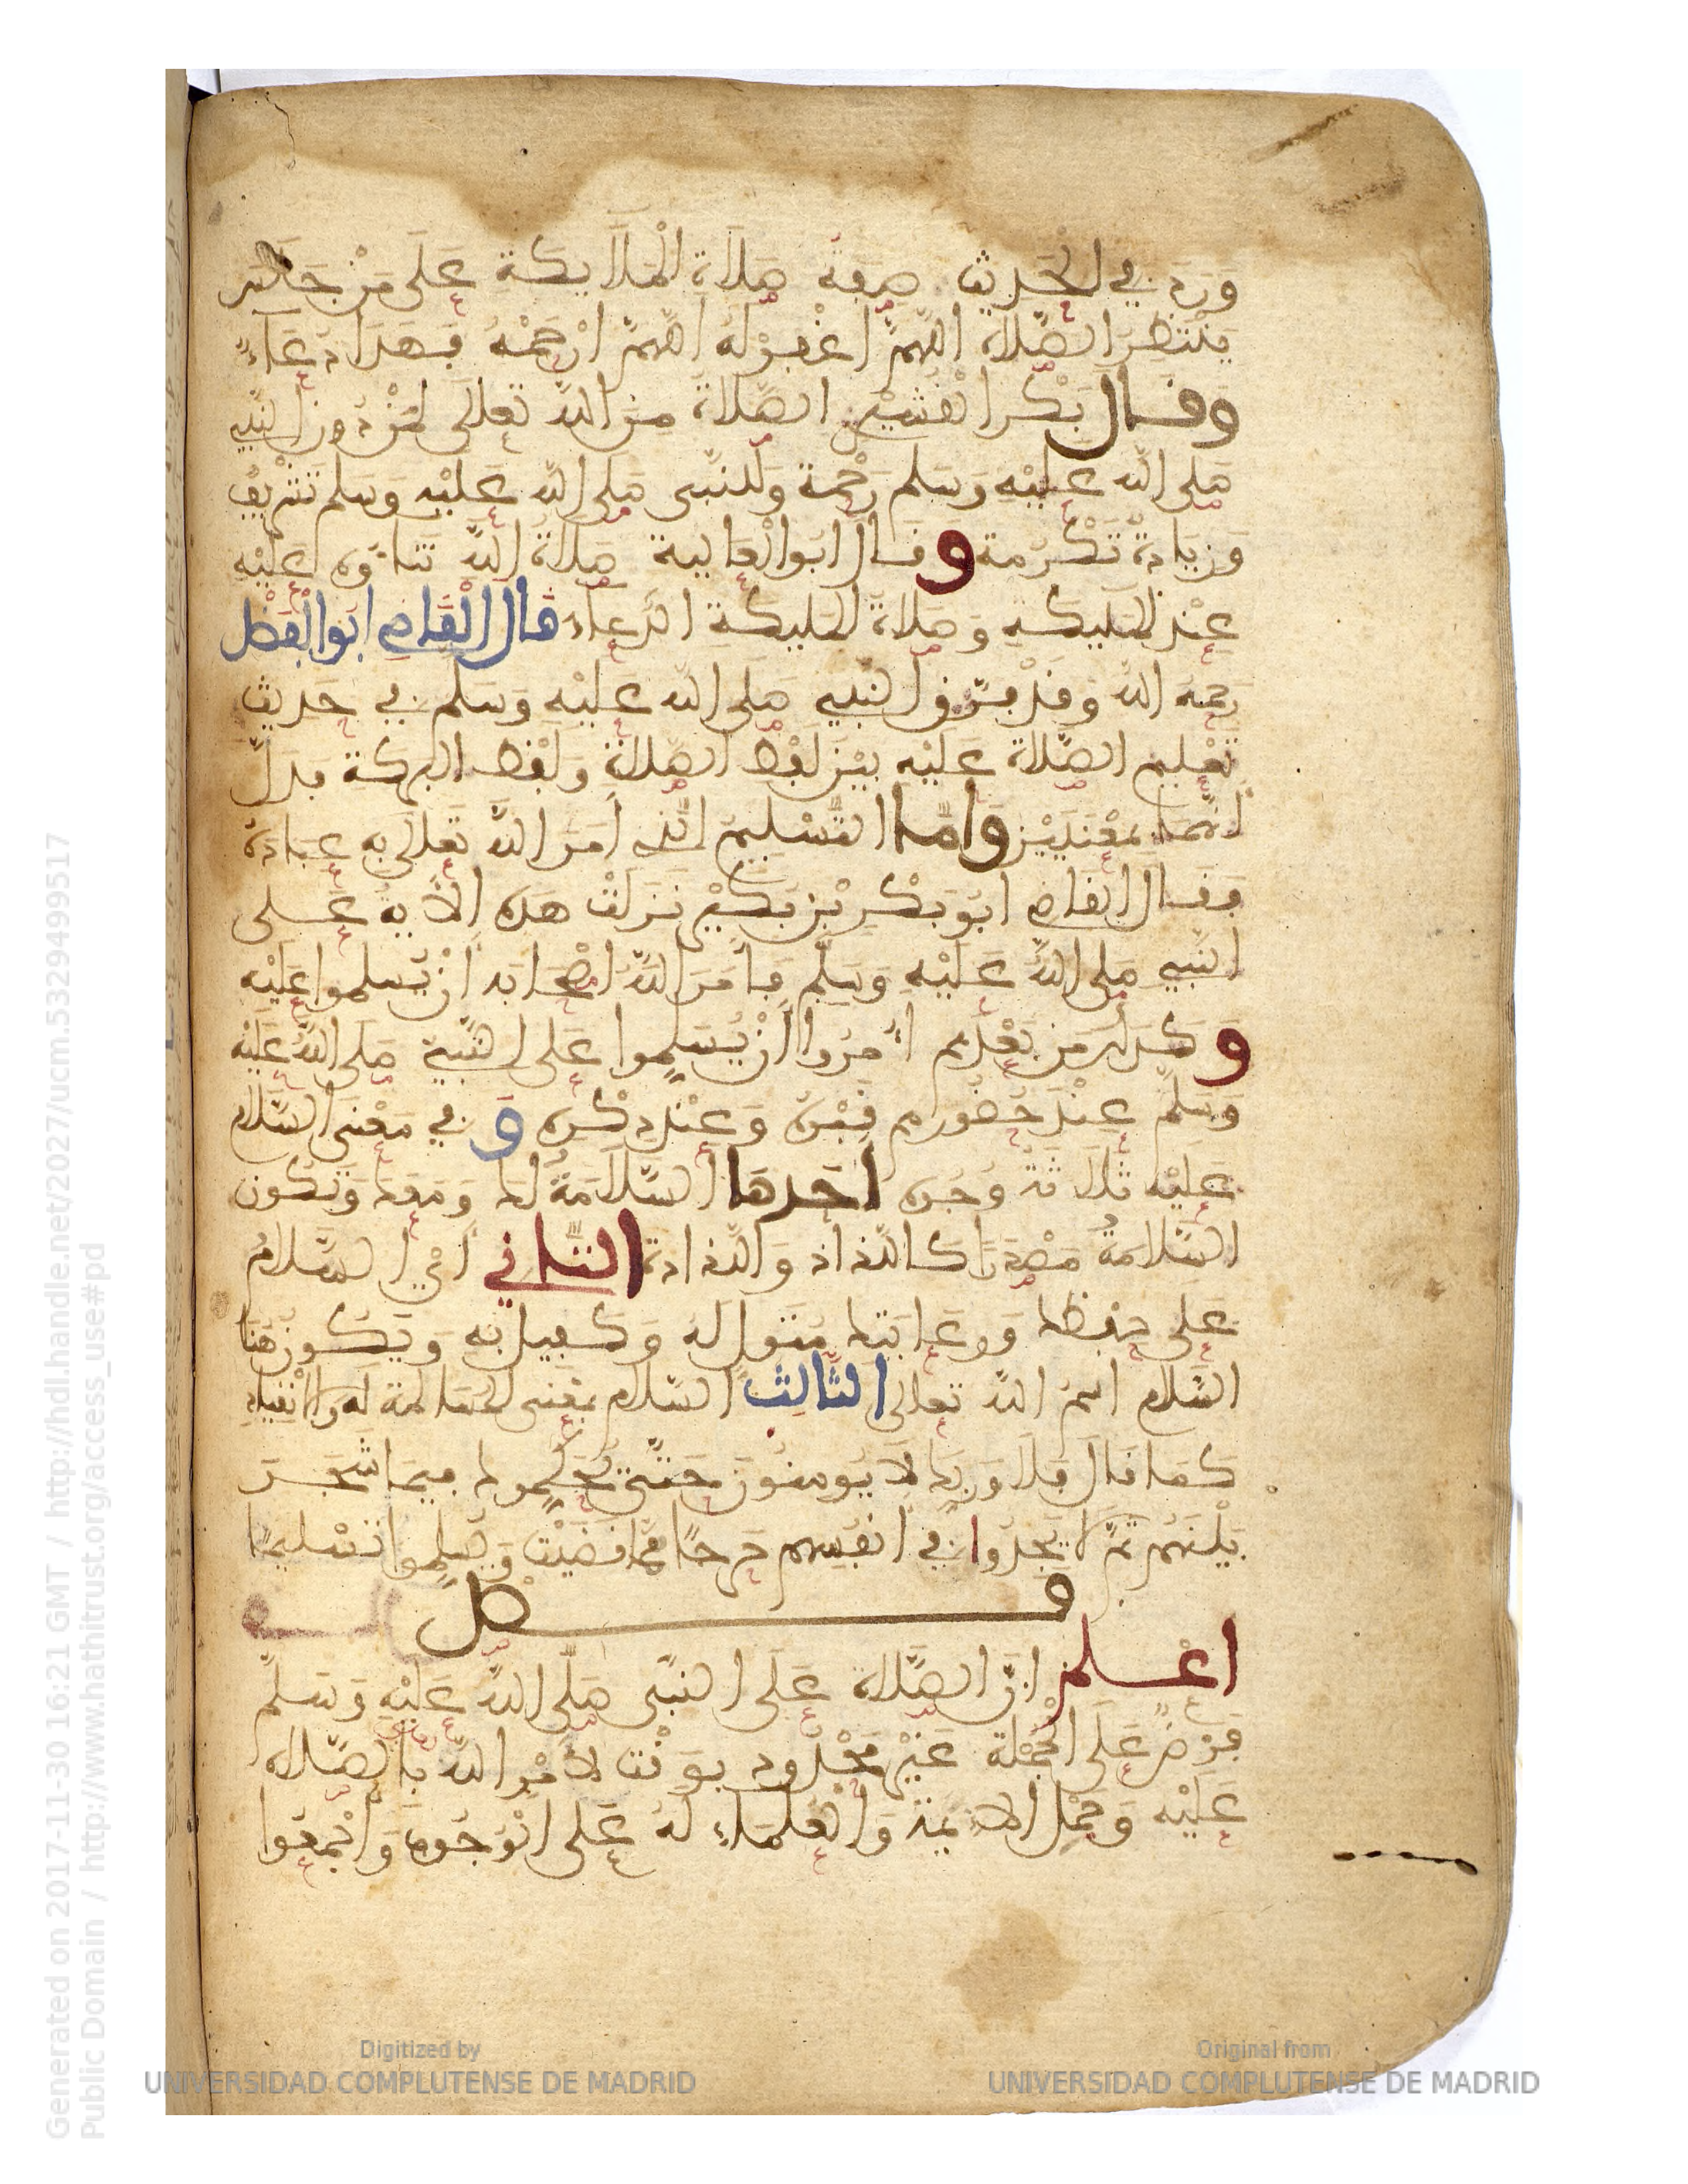 وَرَدَ في الحَدِيث صِفَةُ صَلَاةِ الْمَلَايكة عَلَى مَنْ جَلَسَ
يَنْتَظِرُ الصَّلاة اللهمَّ اغْفِرْ لَهُ اللهمَّ ارْحَمْهُ فهَذَا دُعَاءٌ
وقال بَكْر القُشَيْرِي الصَّلاةُ مِنَ اللهِ تَعالَى لِمَنْ دُونَ النَّبِي
صَلى الله عليْه وَسَلم رَحْمَة وَللنَّبِى صَلى الله عَليْه وَسَلم تَشْرِيفٌ
وَزِيَادَةُ تَكْرُمَة وَقَالَ ابُو الْعَالِيةِ صَلاَةُ اللهِ ثَنَاؤُه عَلَيْه
عِنْدَ المَليكَةِ وَصَلاةُ المَليكةِ الدُّعاءُ قال الْقَاضِي ابُو الْفَضْل
رَحمَهُ الله وَقَدْ فَرَّق النبِي صَلى الله عَليْه وَسَلم في حَدِيث
تَعْليم الصَّلاة عَلَيْه بَيْنَ لَفْظِ الصَّلاةِ وَلَفْظ البَركة فدَلَّ
انَّهُمَا بمَعْنَيَيْن وَامَّا التَّسْلِيمُ الذِي أَمَرَ اللهُ تَعَلَى بِهِ عِبَادَهُ
فَقَال القاضِي ابُو بَكْرِ بْنِ بُكَيْرٍ نَزَلَتْ هَذِه الآيَةُ عَلى
النَّبِي صَلى اللهُ عَلَيْه وَسَلَّم فَأَمَرَ اللهُ اصْحَابَهُ أَنْ يُسَلموا عَلَيْه
وكذلك مَن بَعْدَهم أُمِرُوا أَنْ يُسَلِّموا عَلَى النَّبِيِّ صَلى اللهُ عَلَيْه
وَسَلم عِنْدَ حُضُورهم قَبْرَهُ وَعِنْدَ ذِكْرِه وَفي مَعْنَى السَّلام
عَليْه ثَلَاثَةُ وُجُوه احَدهَا السَّلَامَةُ لَك وَمَعَك وَتَكُون
السَّلامَةُ مَصْدَرًا كاللذاذ وَاللذاذة الثَّانِي أَيْ السَّلامُ
عَلَى حِفظك وَرِعَايَتك مُتَوَلٍّ لَهُ وَكَفِيل بِه وَيَكُونُ هُنَا
السَّلام اسْمُ الله تعالى الثَّالث السَّلام بمَعْنَى المُسَالَمةِ لَه وَالانْقِيادِ
كَمَا قَالَ فَلَا وَرَبِّكَ لَا يُومِنُونَ حَتَّى يُحَكِّمُوك فِيمَا شَجَرَ
بَيْنَهُمْ ثُمَّ لا يَجِدُوا في انْفُسِهِم حَرَجًا مِّمَّا قَضَيْتَ وَيُسَلِّمُوا تَسْلِيمًا
فصل
اعْلَمْ انَّ الصَّلاةَ عَلَى النَّبِى صَلَّى اللهُ عَلَيْهِ وَسَلَّم
فَرْضٌ عَلَى الْجُمْلَةِ غَيْرُ مَحْدُودٍ بوَقْت لأَمْرِ اللهِ بِالصَّلاة
عَلَيْه وَحَمْلِ الأيمة وَالْعُلَمَاءِ لَهُ عَلَى الْوُجُوب وَأَجْمَعُوا
Generated on 2017-11-30 16:21 GMT / http://hdl.handle.net/2027/ucm.5329499517
Public Domain / http://www.hathitrust.org/access_use#pd
Digitized by
UNIVERSIDAD COMPLUTENSE DE MADRID
Original from
UNIVERSIDAD COMPLUTENSE DE MADRID